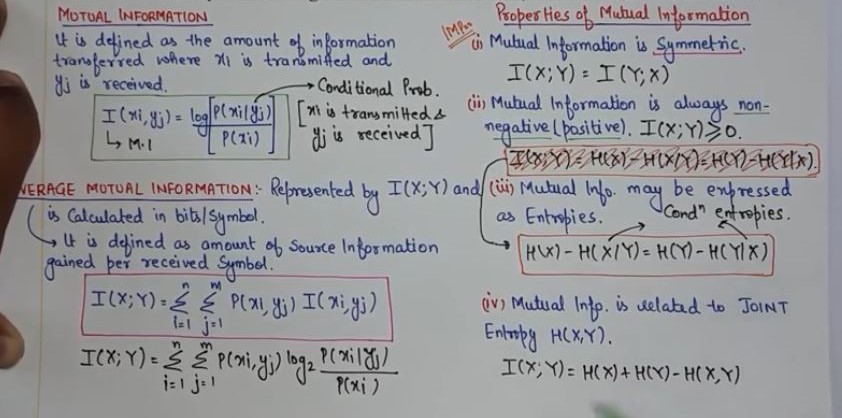 MUTUAL INFORMATION
It is defined as the amount of information
transferred where xi is transmitted and
yj is received.
→ Conditional Prob.
I(xi,yj) = log[P(xi/yj)/P(xi)]
↳ M.I
[xi is transmitted &
yj is received]
VERAGE MUTUAL INFORMATION:- Represented by I(X;Y) and
is Calculated in bits/Symbol.
→ It is defined as amount of Source Information
gained per received Symbol.
I(X;Y) = Σ_{i=1}^{n} Σ_{j=1}^{m} P(xi,yj) I(xi,yj)
I(X;Y) = Σ_{i=1}^{n} Σ_{j=1}^{m} P(xi,yj) log₂ P(xi/yj)/P(xi)
Properties of Mutual Information
IMP
(i) Mutual Information is Symmetric.
I(X;Y) = I(Y;X)
(ii) Mutual Information is always non-
negative (positive). I(X;Y) ≥ 0.
I(X;Y) = H(X) - H(X/Y) = H(Y) - H(Y/X).
(iii) Mutual Info. may be expressed
as Entropies.
Condⁿ entropies.
H(X) - H(X/Y) = H(Y) - H(Y/X)
(iv) Mutual Info. is related to JOINT
Entropy H(X,Y).
I(X;Y) = H(X) + H(Y) - H(X,Y)